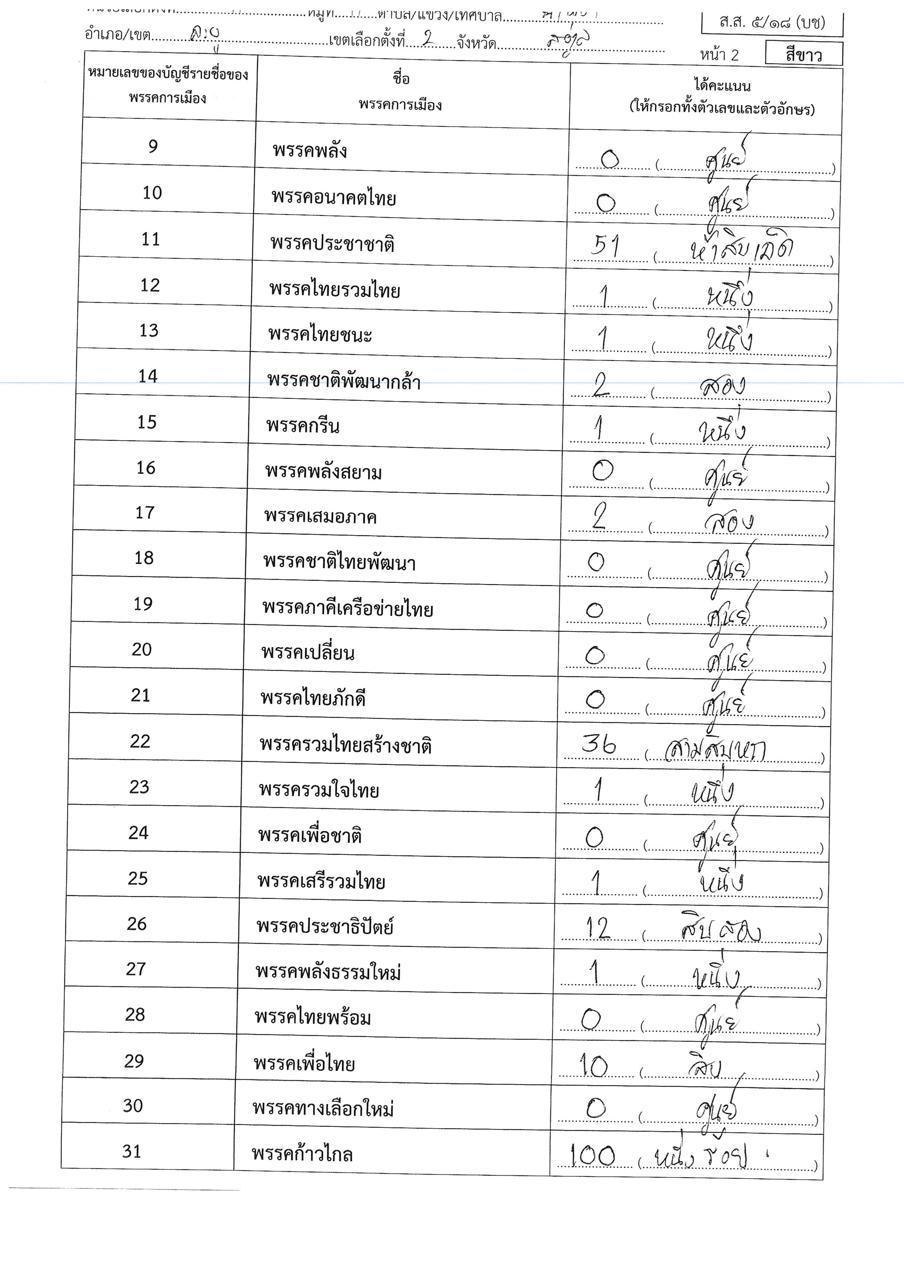 ตำบล/แขวง/เทศบาล
ส.ส. ๕/๑๘ (บช)
อำเภอ/เขต ละงู เขตเลือกตั้งที่ 2 จังหวัด สตูล
หน้า 2 สีขาว
หมายเลขของบัญชีรายชื่อของพรรคการเมือง ชื่อพรรคการเมือง ได้คะแนน (ให้กรอกทั้งตัวเลขและตัวอักษร)
9 พรรคพลัง 0 (ศูนย์)
10 พรรคอนาคตไทย 0 (ศูนย์)
11 พรรคประชาชาติ 51 (ห้าสิบเอ็ด)
12 พรรคไทยรวมไทย 1 (หนึ่ง)
13 พรรคไทยชนะ 1 (หนึ่ง)
14 พรรคชาติพัฒนากล้า 2 (สอง)
15 พรรคกรีน 1 (หนึ่ง)
16 พรรคพลังสยาม 0 (ศูนย์)
17 พรรคเสมอภาค 2 (สอง)
18 พรรคชาติไทยพัฒนา 0 (ศูนย์)
19 พรรคภาคีเครือข่ายไทย 0 (ศูนย์)
20 พรรคเปลี่ยน 0 (ศูนย์)
21 พรรคไทยภักดี 0 (ศูนย์)
22 พรรครวมไทยสร้างชาติ 36 (สามสิบหก)
23 พรรครวมใจไทย 1 (หนึ่ง)
24 พรรคเพื่อชาติ 0 (ศูนย์)
25 พรรคเสรีรวมไทย 1 (หนึ่ง)
26 พรรคประชาธิปัตย์ 12 (สิบสอง)
27 พรรคพลังธรรมใหม่ 1 (หนึ่ง)
28 พรรคไทยพร้อม 0 (ศูนย์)
29 พรรคเพื่อไทย 10 (สิบ)
30 พรรคทางเลือกใหม่ 0 (ศูนย์)
31 พรรคก้าวไกล 100 (หนึ่งร้อย)